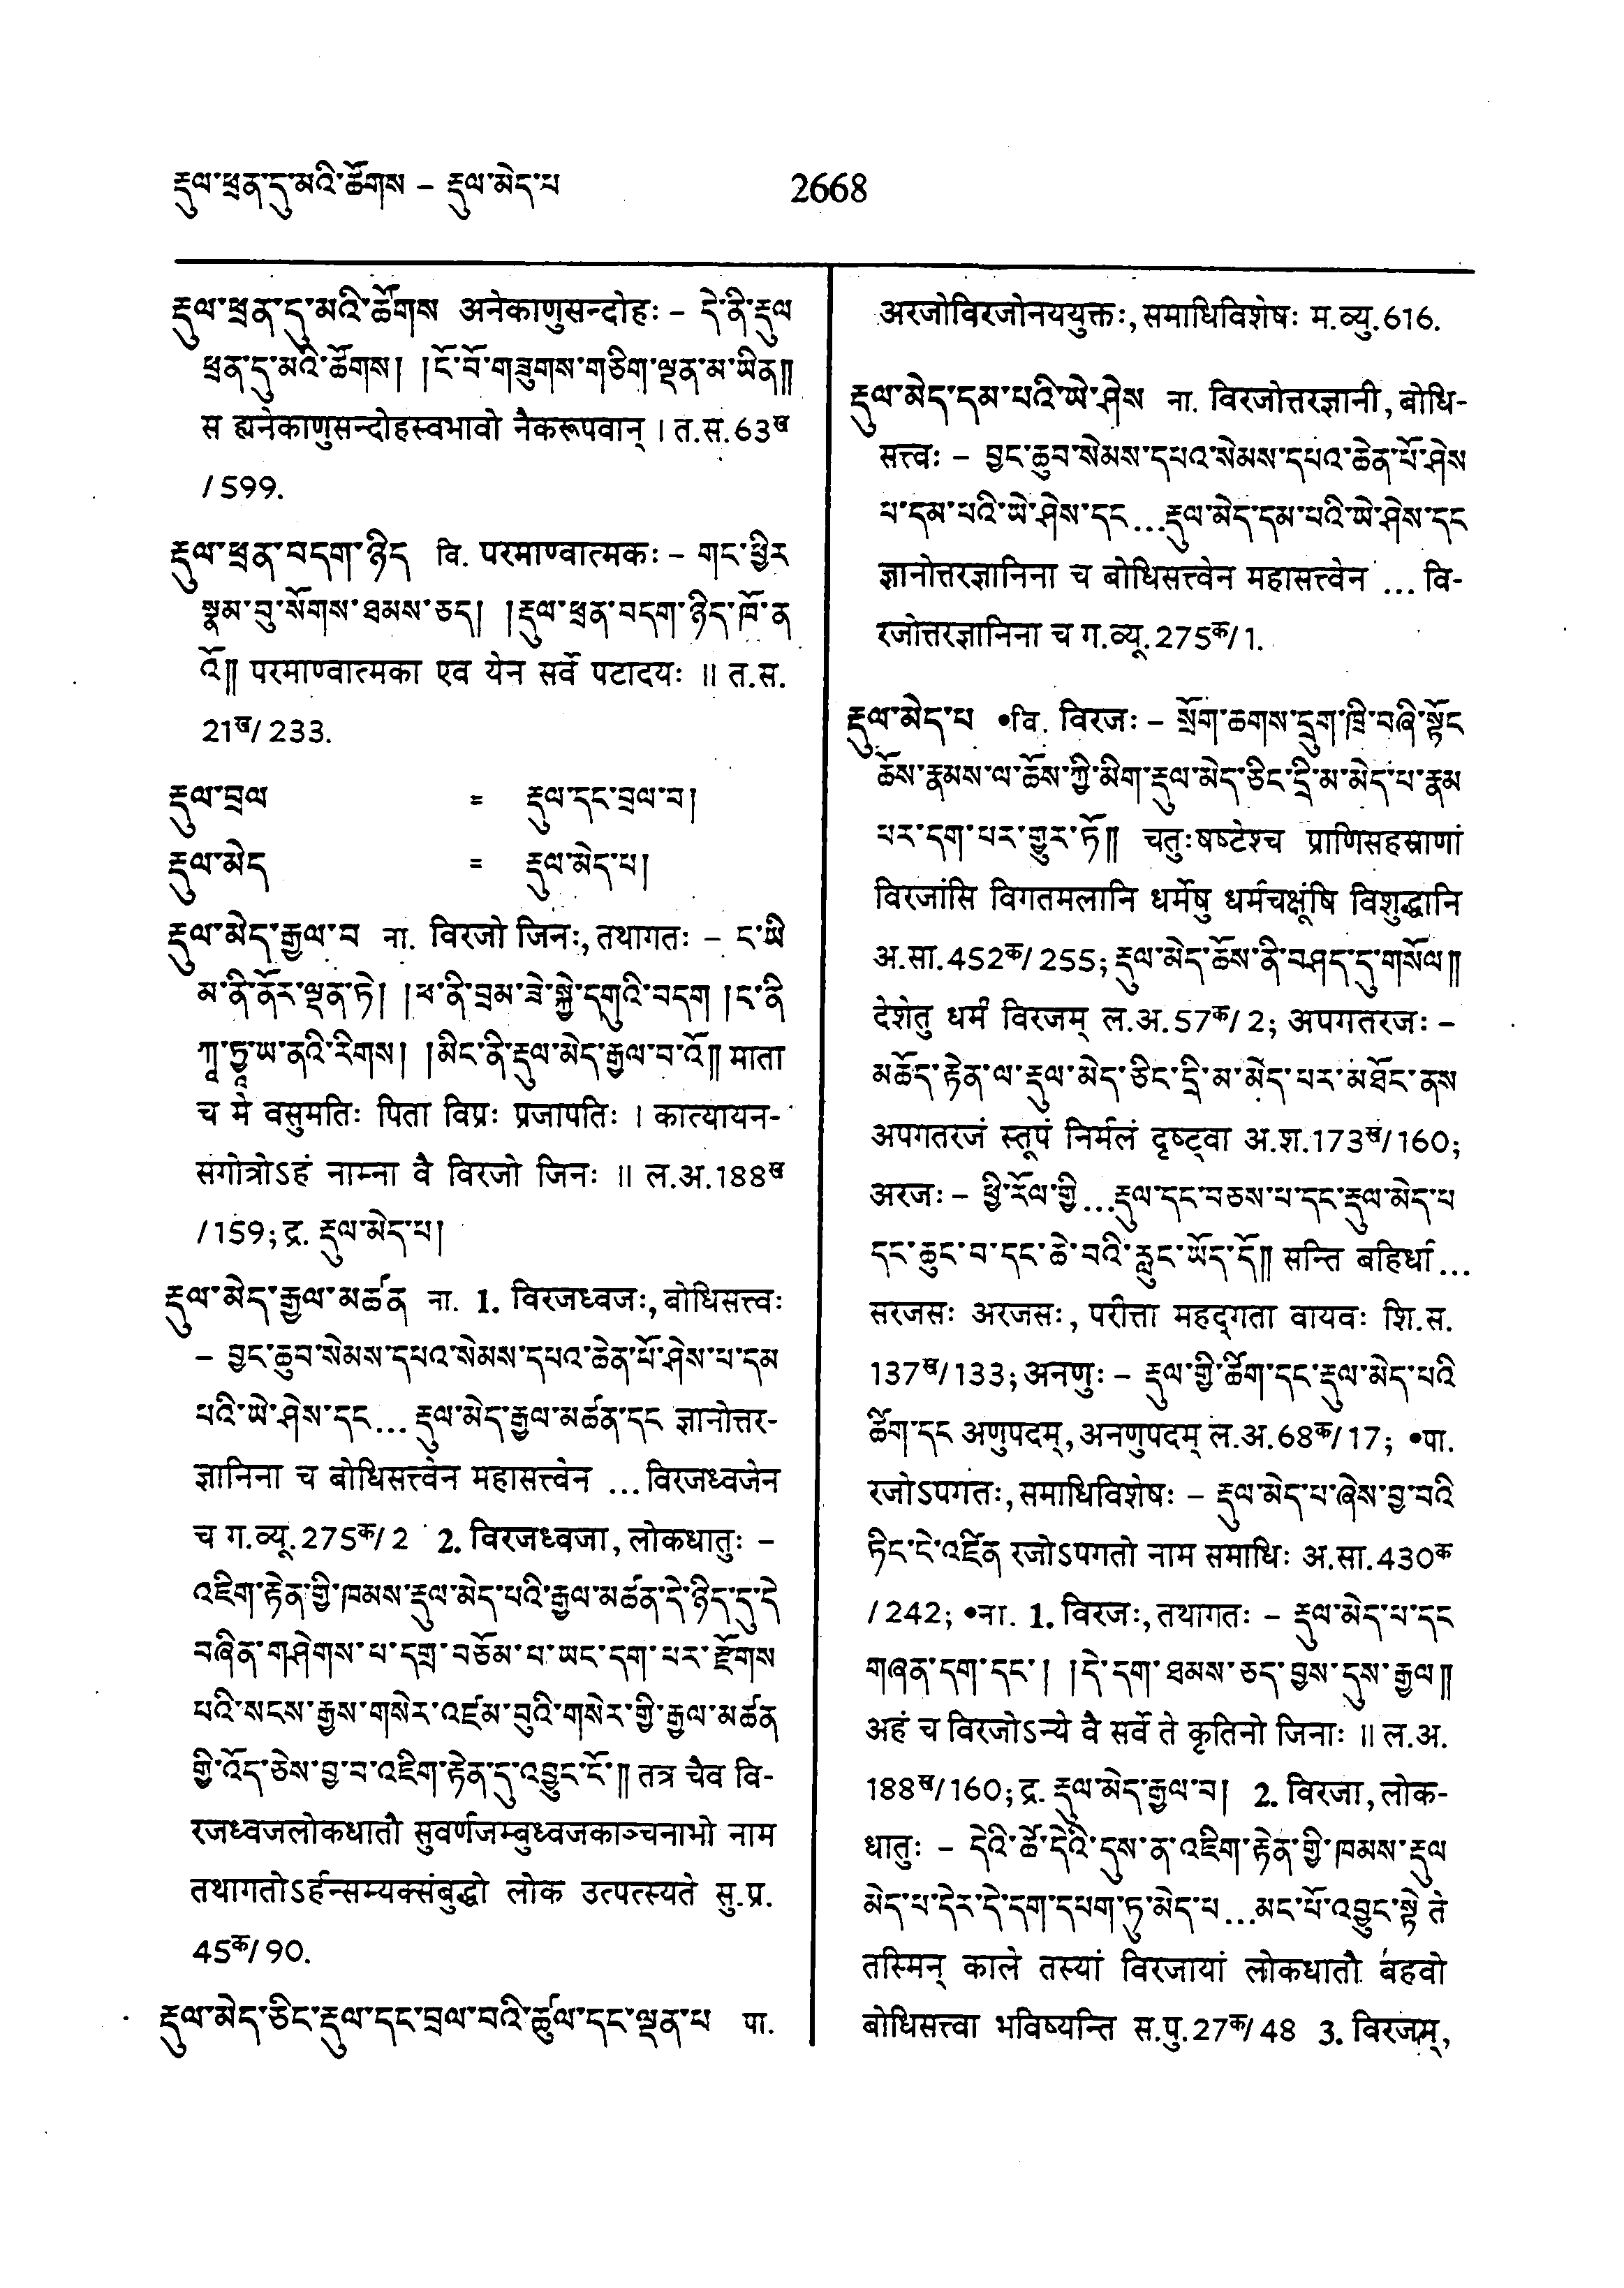 རྡུལ་ཕྲན་དུ་མའི་ཚོགས – རྡུལ་མེད་པ
2668
རྡུལ་ཕྲན་དུ་མའི་ཚོགས अनेकाणुसन्दोहः – དེ་ནི་རྡུལ
ཕྲན་དུ་མའི་ཚོགས། །ངོ་བོ་གཟུགས་གཅིག་ལྡན་མ་ཡིན།།
स ह्यनेकाणुसन्दोहस्वभावो नैकरूपवान् । त.स.63ख
/599.
རྡུལ་ཕྲན་བདག་ཉིད वि. परमाण्वात्मकः – གང་ཕྱིར
སྣམ་བུ་སོགས་ཐམས་ཅད། །རྡུལ་ཕྲན་བདག་ཉིད་ཁོ་ན
འོ།། परमाण्वात्मका एव येन सर्वे पटादयः ॥ त.स.
21ख/233.
རྡུལ་བྲལ = རྡུལ་དང་བྲལ་བ།
རྡུལ་མེད = རྡུལ་མེད་པ།
རྡུལ་མེད་རྒྱལ་བ ना. विरजो जिनः, तथागतः – ང་ཡི
མ་ནི་ནོར་ལྡན་ཏེ། །ཕ་ནི་བྲམ་ཟེ་སྐྱེ་དགུའི་བདག །ང་ནི
ཀཱ་ཏྱཱ་ཡ་ནའི་རིགས། །མིང་ནི་རྡུལ་མེད་རྒྱལ་བ་འོ།། माता
च मे वसुमतिः पिता विप्रः प्रजापतिः । कात्यायन-
सगोत्रोऽहं नाम्ना वै विरजो जिनः ॥ ल.अ.188ख
/159; द्र. རྡུལ་མེད་པ།
རྡུལ་མེད་རྒྱལ་མཚན ना. 1. विरजध्वजः, बोधिसत्त्वः
– བྱང་ཆུབ་སེམས་དཔའ་སེམས་དཔའ་ཆེན་པོ་ཤེས་པ་དམ
པའི་ཡེ་ཤེས་དང... རྡུལ་མེད་རྒྱལ་མཚན་དང ज्ञानोत्तर-
ज्ञानिना च बोधिसत्त्वेन महासत्त्वेन ... विरजध्वजेन
च ग.व्यू.275क/2 2. विरजध्वजा, लोकधातुः –
འཇིག་རྟེན་གྱི་ཁམས་རྡུལ་མེད་པའི་རྒྱལ་མཚན་དེ་ཉིད་དུ་དེ
བཞིན་གཤེགས་པ་དགྲ་བཅོམ་པ་ཡང་དག་པར་རྫོགས
པའི་སངས་རྒྱས་གསེར་འཛམ་བུའི་གསེར་གྱི་རྒྱལ་མཚན
གྱི་འོད་ཅེས་བྱ་བ་འཇིག་རྟེན་དུ་འབྱུང་ངོ་།། तत्र चैव वि-
रजध्वजलोकधातौ सुवर्णजम्बुध्वजकाञ्चनाभो नाम
तथागतोऽर्हन्सम्यक्संबुद्धो लोक उत्पत्स्यते सु.प्र.
45क/90.
རྡུལ་མེད་ཅིང་རྡུལ་དང་བྲལ་བའི་ཚུལ་དང་ལྡན་པ पा.
अरजोविरजोनययुक्तः, समाधिविशेषः म.व्यु.616.
རྡུལ་མེད་དམ་པའི་ཡེ་ཤེས ना. विरजोत्तरज्ञानी, बोधि-
सत्त्वः – བྱང་ཆུབ་སེམས་དཔའ་སེམས་དཔའ་ཆེན་པོ་ཤེས
པ་དམ་པའི་ཡེ་ཤེས་དང...རྡུལ་མེད་དམ་པའི་ཡེ་ཤེས་དང
ज्ञानोत्तरज्ञानिना च बोधिसत्त्वेन महासत्त्वेन ... वि-
रजोत्तरज्ञानिना च ग.व्यू.275क/1.
རྡུལ་མེད་པ •वि. विरजः – སྲོག་ཆགས་དྲུག་ཁྲི་བཞི་སྟོང
ཆོས་རྣམས་ལ་ཆོས་ཀྱི་མིག་རྡུལ་མེད་ཅིང་དྲི་མ་མེད་པ་རྣམ
པར་དག་པར་གྱུར་ཏོ།། चतुःषष्टेश्च प्राणिसहस्राणां
विरजांसि विगतमलानि धर्मेषु धर्मचक्षूंषि विशुद्धानि
अ.सा.452क/255; རྡུལ་མེད་ཆོས་ནི་བཤད་དུ་གསོལ།།
देशेतु धर्मं विरजम् ल.अ.57क/2; अपगतरजः –
མཆོད་རྟེན་ལ་རྡུལ་མེད་ཅིང་དྲི་མ་མེད་པར་མཐོང་ནས
अपगतरजं स्तूपं निर्मलं दृष्ट्वा अ.श.173ख/160;
अरजः – ཕྱི་རོལ་གྱི...རྡུལ་དང་བཅས་པ་དང་རྡུལ་མེད་པ
དང་ཆུང་བ་དང་ཆེ་བའི་རླུང་ཡོད་དོ།། सन्ति बहिर्धा...
सरजसः अरजसः, परीत्ता महद्गता वायवः शि.स.
137ख/133; अनणुः – རྡུལ་གྱི་ཚིག་དང་རྡུལ་མེད་པའི
ཚིག་དང अणुपदम्, अनणुपदम् ल.अ.68क/17; •पा.
रजोऽपगतः, समाधिविशेषः – རྡུལ་མེད་པ་ཞེས་བྱ་བའི
ཏིང་ངེ་འཛིན रजोऽपगतो नाम समाधिः अ.सा.430क
/242; •ना. 1. विरजः, तथागतः – རྡུལ་མེད་པ་དང
གཞན་དག་དང་། །དེ་དག་ཐམས་ཅད་བྱས་དུས་རྒྱལ།།
अहं च विरजोऽन्ये वै सर्वे ते कृतिनो जिनाः ॥ ल.अ.
188ख/160; द्र. རྡུལ་མེད་རྒྱལ་བ། 2. विरजा, लोक-
धातुः – དེའི་ཚེ་དེའི་དུས་ན་འཇིག་རྟེན་གྱི་ཁམས་རྡུལ
མེད་པ་དེར་དེ་དག་དཔག་ཏུ་མེད་པ...མང་པོ་འབྱུང་སྟེ ते
तस्मिन् काले तस्यां विरजायां लोकधातौ बहवो
बोधिसत्त्वा भविष्यन्ति स.पु.27क/48 3. विरजम्,